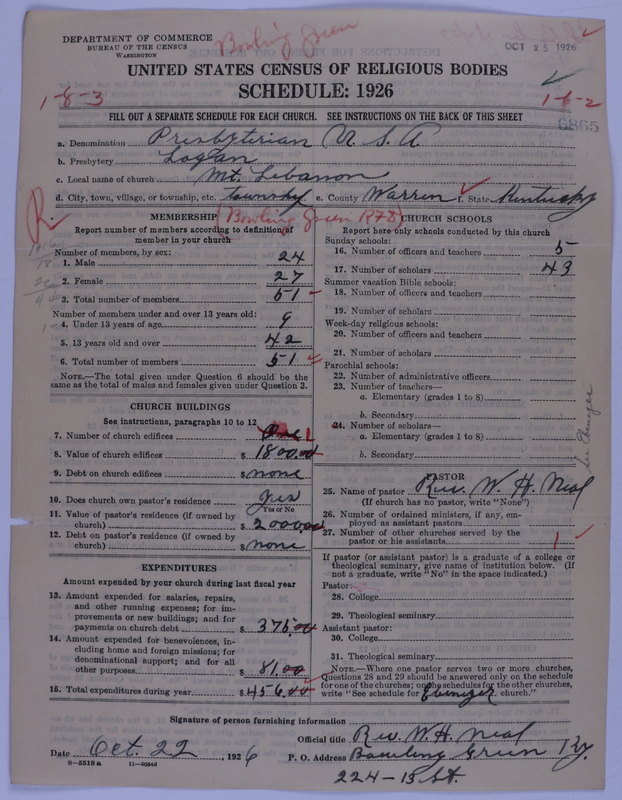 Bowling Green
DEPARTMENT OF COMMERCE
BUREAU OF THE CENSUS
WASHINGTON
OCT 25 1926
UNITED STATES CENSUS OF RELIGIOUS BODIES
SCHEDULE: 1926
1-8-3
1-6-2
FILL OUT A SEPARATE SCHEDULE FOR EACH CHURCH. SEE INSTRUCTIONS ON THE BACK OF THIS SHEET
6865
a. Denomination Presbyterian U.S.A
b. Presbytery Logan
c. Local name of church Mt. Lebanon
d. City, town, village, or township, etc. township e. County Warren f. State Kentucky
R
Bowling Green R#8
MEMBERSHIP
Report number of members according to definition of
member in your church
Number of members, by sex:
1. Male 24
2. Female 27
3. Total number of members 51
Number of members under and over 13 years old:
4. Under 13 years of age 9
5. 13 years old and over 42
6. Total number of members 51
NOTE.—The total given under Question 6 should be the
same as the total of males and females given under Question 3.
CHURCH BUILDINGS
See instructions, paragraphs 10 to 12
7. Number of church edifices One 1
8. Value of church edifices $ 1800.00
9. Debt on church edifices $ none
10. Does church own pastor's residence yes
Yes or No
11. Value of pastor's residence (if owned by
church) $ 2000.00
12. Debt on pastor's residence (if owned by
church) $ none
EXPENDITURES
Amount expended by your church during last fiscal year
13. Amount expended for salaries, repairs,
and other running expenses; for im-
provements or new buildings; and for
payments on church debt $ 375.00
14. Amount expended for benevolences, in-
cluding home and foreign missions; for
denominational support; and for all
other purposes $ 81.00
15. Total expenditures during year $ 456.00
CHURCH SCHOOLS
Report here only schools conducted by this church
Sunday schools:
16. Number of officers and teachers 5
17. Number of scholars 43
Summer vacation Bible schools:
18. Number of officers and teachers
19. Number of scholars
Week-day religious schools:
20. Number of officers and teachers
21. Number of scholars
Parochial schools:
22. Number of administrative officers
23. Number of teachers—
a. Elementary (grades 1 to 8)
b. Secondary
24. Number of scholars—
a. Elementary (grades 1 to 8)
b. Secondary
See Ebenezer
PASTOR
25. Name of pastor Rev. W. H. Neal
(If church has no pastor, write "None")
26. Number of ordained ministers, if any, em-
ployed as assistant pastors
27. Number of other churches served by the
pastor or his assistants 1
If pastor (or assistant pastor) is a graduate of a college or
theological seminary, give name of institution below. (If
not a graduate, write "No" in the space indicated.)
Pastor:
28. College
29. Theological seminary
Assistant pastor:
30. College
31. Theological seminary
NOTE.—Where one pastor serves two or more churches,
Questions 28 and 29 should be answered only on the schedule
for one of the churches; on the schedules for the other churches,
write "See schedule for Ebenezer church."
Signature of person furnishing information
Official title Rev. W. H. Neal
Date Oct. 22, 1926 P. O. Address Bowling Green Ky.
8-5518a
224-15 St.